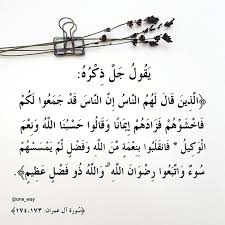 يَقُولُ جَلَّ ذِكْرُهُ:
﴿الَّذِينَ قَالَ لَهُمُ النَّاسُ إِنَّ النَّاسَ قَدْ جَمَعُوا لَكُمْ
فَاخْشَوْهُمْ فَزَادَهُمْ إِيمَانًا وَقَالُوا حَسْبُنَا اللَّهُ وَنِعْمَ
الْوَكِيلُ * فَانْقَلَبُوا بِنِعْمَةٍ مِّنَ اللَّهِ وَفَضْلٍ لَّمْ يَمْسَسْهُمْ
سُوءٌ وَاتَّبَعُوا رِضْوَانَ اللَّهِ ۗ وَاللَّهُ ذُو فَضْلٍ عَظِيمٍ﴾.
@one_way
﴿سُورَة آل عمران: ١٧٣، ١٧٤﴾